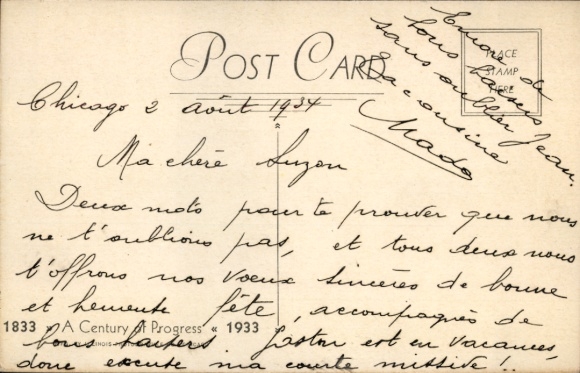 POST CARD
PLACE
STAMP
HERE
Chicago 2 août 1934
Ma chère Suzon
Deux mots pour te prouver que nous
ne t'oublions pas, et tous deux nous
t'offrons nos voeux sincères de bonne
et heureuse fête, accompagnés de
1833 « A Century of Progress « 1933
bons baisers. Gaston est en vacances,
donc excuse ma courte missive !..
Encore de
bons baisers
sans oublier Jean.
Ta cousine
Mado